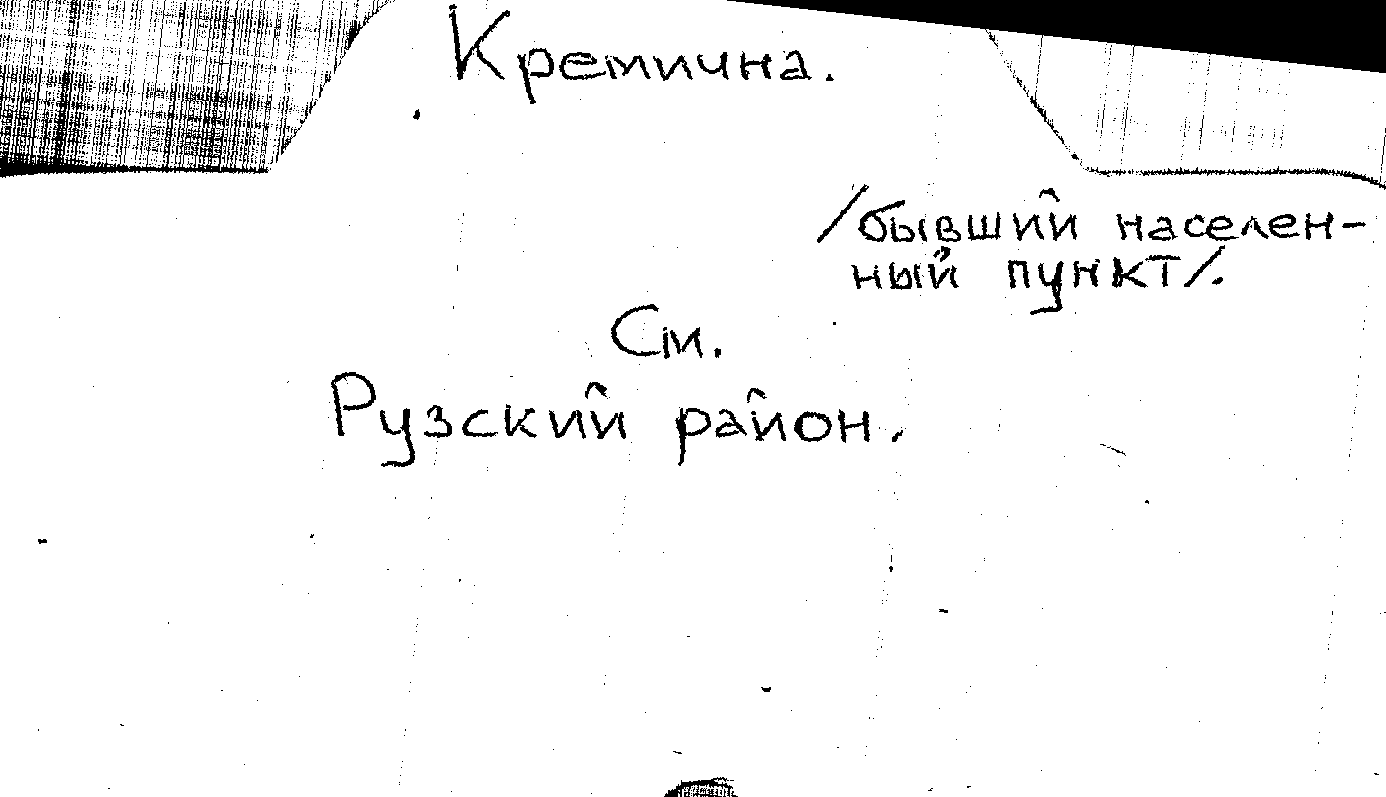 Кремична.
/бывший населен-
ный пункт/.
См.
Рузский район.